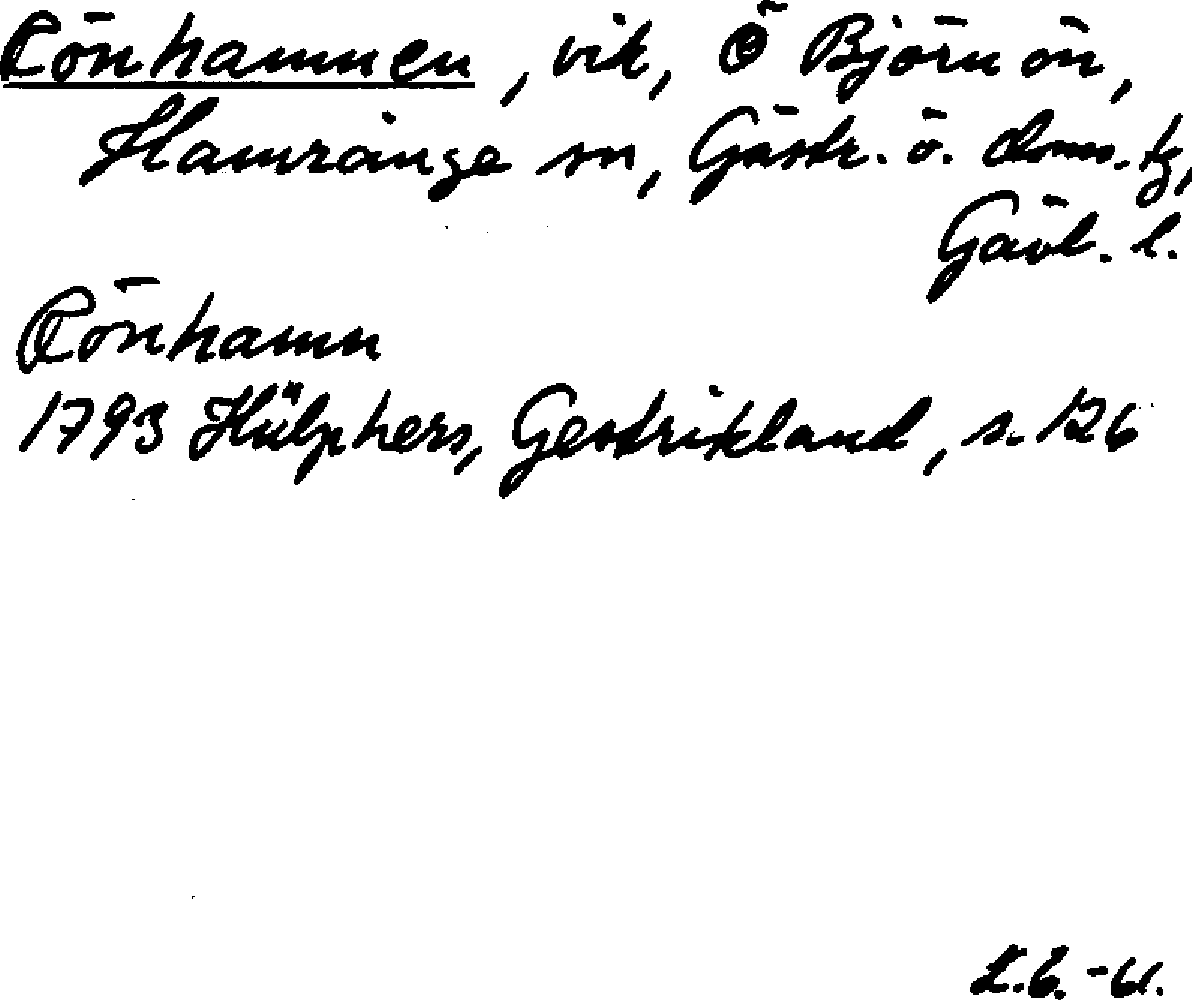 Rönhamnen, vik, Ö Björnön,
Hamrånge sn, Gästr. ö. doms. tg,
Gävl. l.
Rönhamn
1793 Hülphers, Gestrikland, s. 126